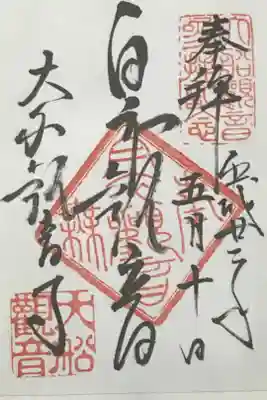 奉拝
平成廿二年
五月十日
白衣観音
大船観音寺
大船
觀音